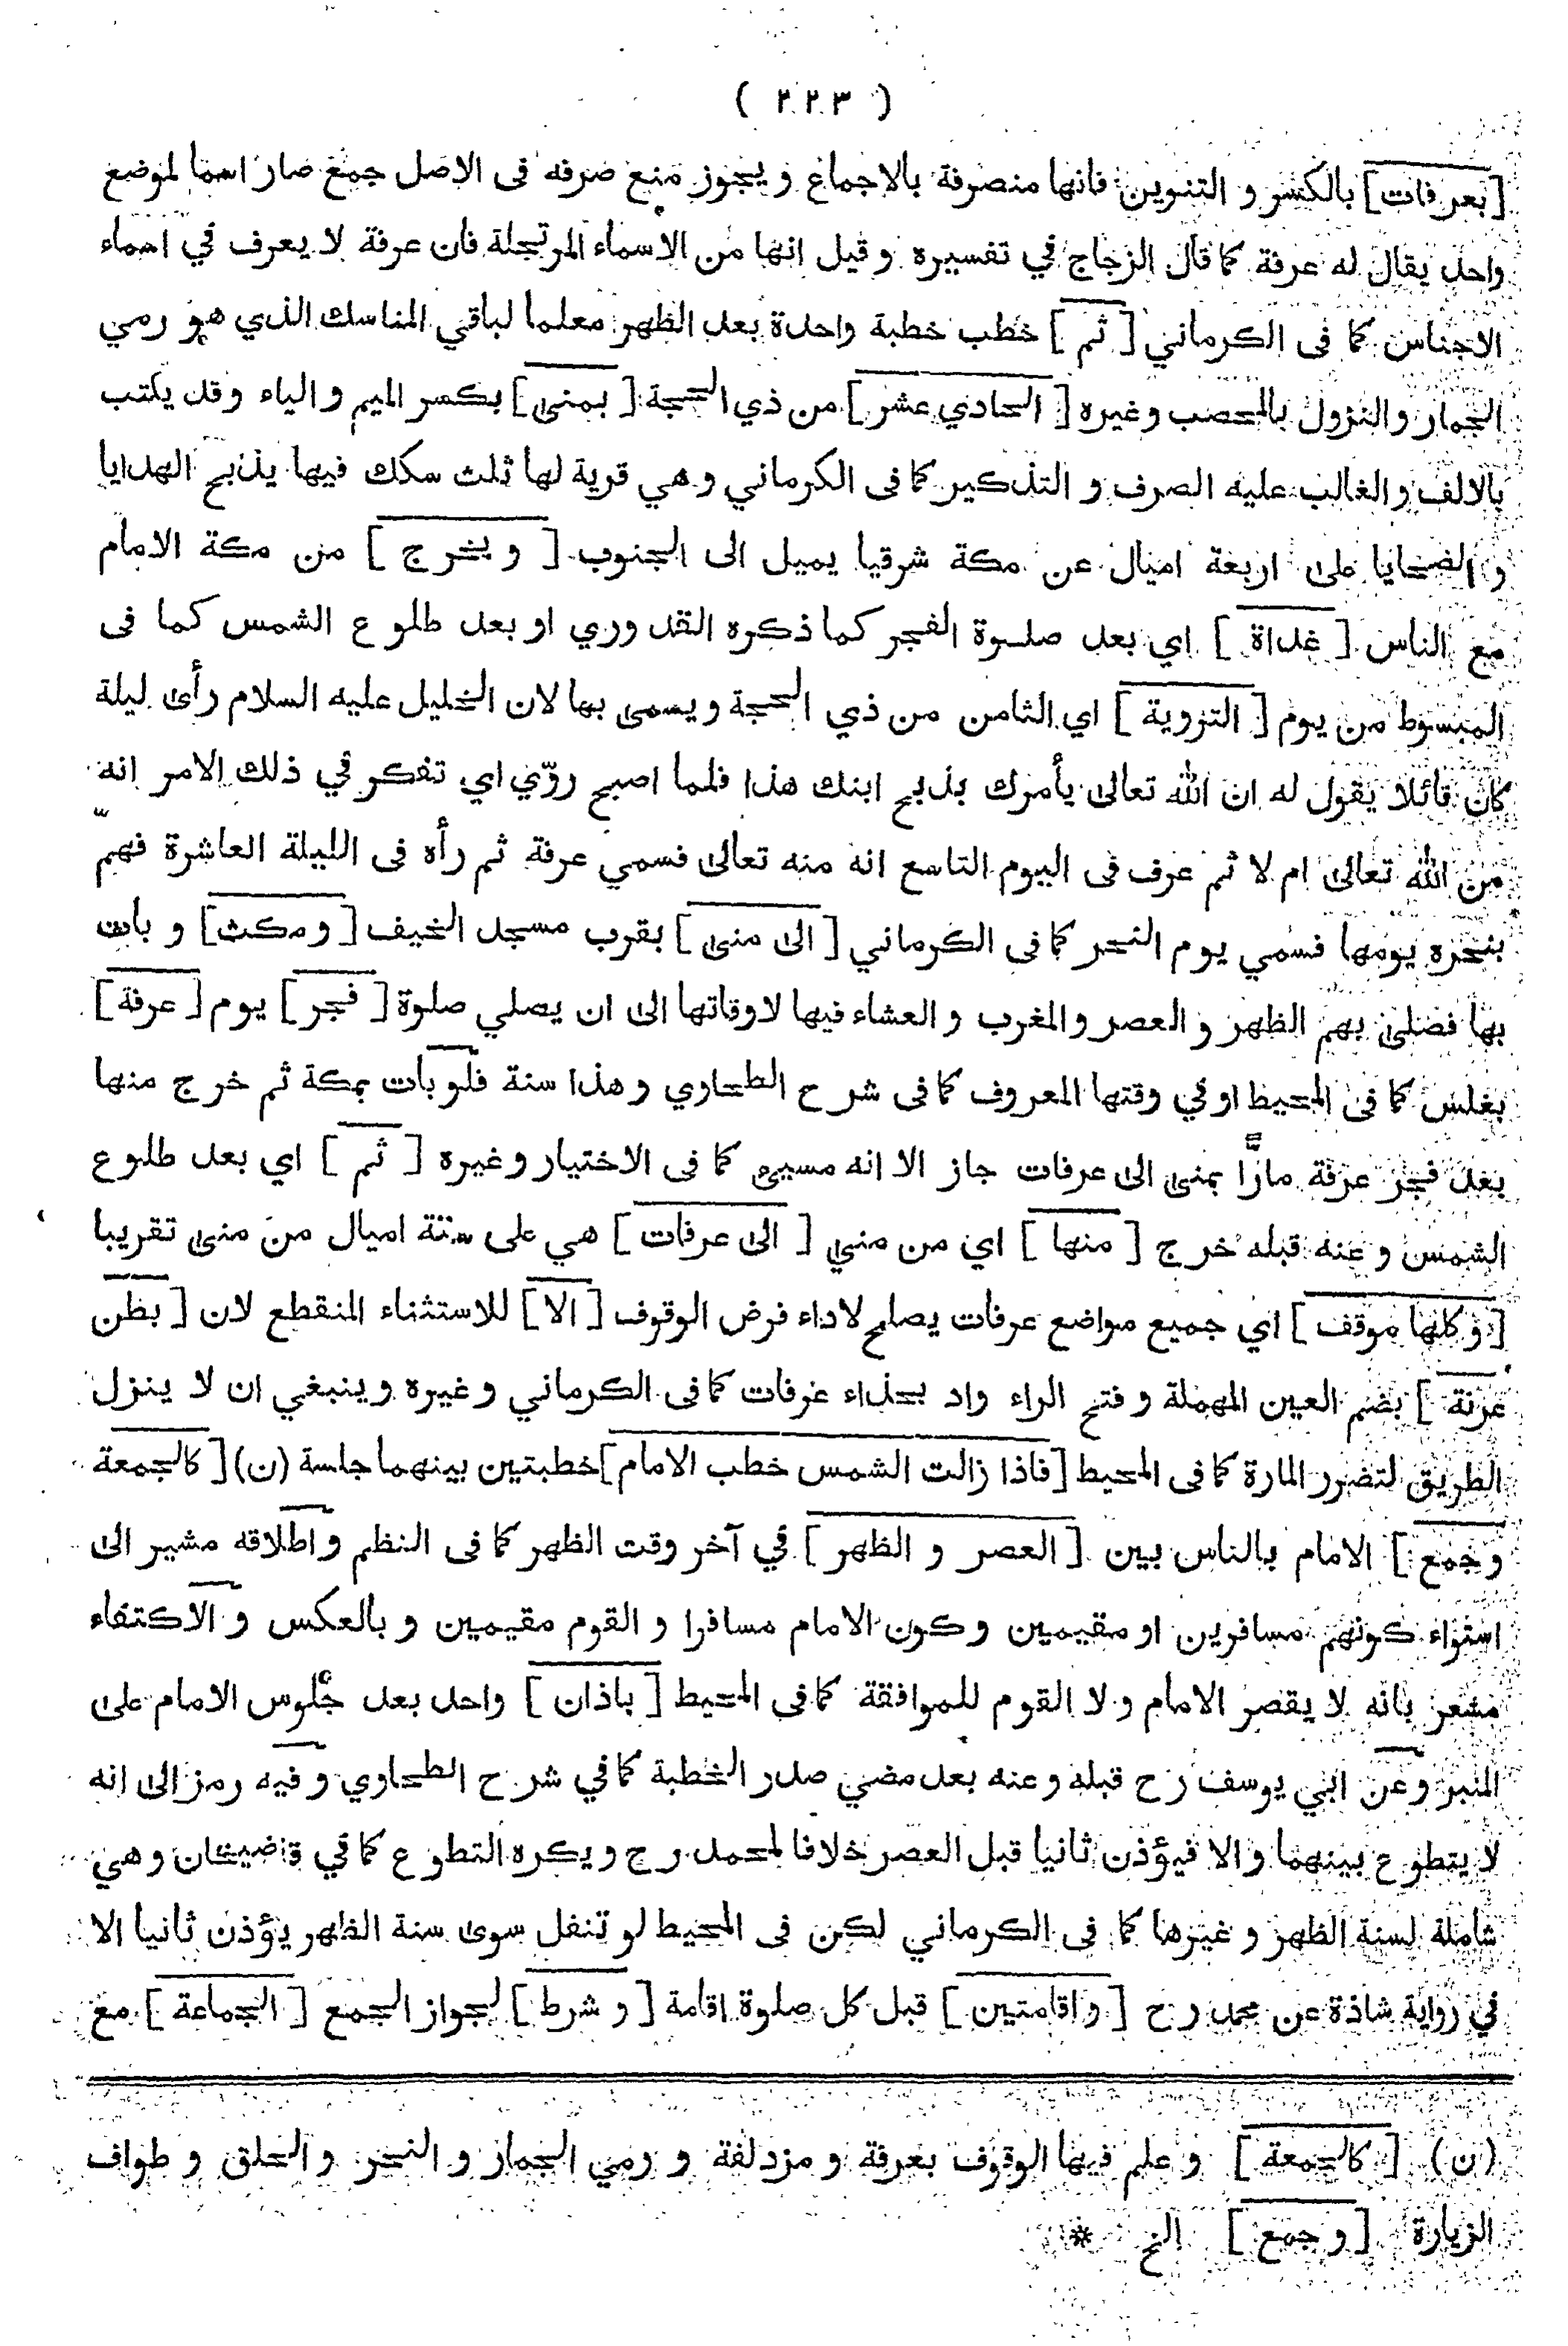 ( ٢٢٣ )
[بعرفات] بالكسر و التنوين فانها منصرفة بالاجماع و يجوز منع صرفه فى الاصل جمع صار اسما لموضع
واحد يقال له عرفة كما قال الزجاج في تفسيره و قيل انها من الاسماء المرتجلة فان عرفة لا يعرف في اسماء
الاجناس كما فى الكرماني [ ثم ] خطب خطبة واحدة بعد الظهر معلما لباقي المناسك الذي هو رمي
الجمار و النزول بالمحصب وغيره [ الحادي عشر ] من ذي الحجة [ بمنى ] بكسر الميم و الياء وقد يكتب
بالالف و الغالب عليه الصرف و التذكير كما فى الكرماني و هي قرية لها ثلث سكك فيها يذبح الهدايا
و الضحايا على اربعة اميال عن مكة شرقيا يميل الى الجنوب [ و يخرج ] من مكة الامام
مع الناس [ غداة ] اي بعد صلوة الفجر كما ذكره القدوري او بعد طلوع الشمس كما فى
المبسوط من يوم [ التروية ] اي الثامن من ذي الحجة و يسمى بها لان الخليل عليه السلام رأى ليلة
كان قائلا يقول له ان الله تعالى يأمرك بذبح ابنك هذا فلما اصبح روّي اي تفكر في ذلك الامر انه
من الله تعالى ام لا ثم عرف فى اليوم التاسع انه منه تعالى فسمي عرفة ثم رأه فى الليلة العاشرة فهمّ
بنحره يومها فسمي يوم النحر كما فى الكرماني [ الى منى ] بقرب مسجد الخيف [ و مكث ] و بات
بها فصلى بهم الظهر و العصر و المغرب و العشاء فيها لاوقاتها الى ان يصلي صلوة [ فجر ] يوم [ عرفة ]
بغلس كما فى المحيط او في وقتها المعروف كما فى شرح الطحاوي و هذا سنة فلو بات بمكة ثم خرج منها
بعد فجر عرفة مارًّا بمنى الى عرفات جاز الا انه مسيئ كما فى الاختيار وغيره [ ثم ] اي بعد طلوع
الشمس و عنه قبله خرج [ منها ] اي من منى [ الى عرفات ] هي على ستة اميال من منى تقريبا
[ و كلها موقف ] اي جميع مواضع عرفات يصلح لاداء فرض الوقوف [ الا ] للاستثناء المنقطع لان [ بطن
عرنة ] بضم العين المهملة و فتح الراء واد بحذاء عرفات كما فى الكرماني و غيره و ينبغي ان لا ينزل
الطريق لتضرر المارة كما فى المحيط [ فاذا زالت الشمس خطب الامام ] خطبتين بينهما جلسة (ن) [ كالجمعة
و جمع ] الامام بالناس بين [ العصر و الظهر ] في آخر وقت الظهر كما فى النظم و اطلاقه مشير الى
استواء كونهم مسافرين او مقيمين و كون الامام مسافرا و القوم مقيمين و بالعكس و الاكتفاء
مشعر بانه لا يقصر الامام و لا القوم للموافقة كما فى المحيط [ باذان ] واحد بعد جلوس الامام على
المنبر و عن ابي يوسف رح قبله و عنه بعد مضي صدر الخطبة كما في شرح الطحاوي و فيه رمز الى انه
لا يتطوع بينهما و الا فيؤذن ثانيا قبل العصر خلافا لمحمد رح و يكره التطوع كما في قاضيخان و هي
شاملة لسنة الظهر و غيرها كما فى الكرماني لكن فى المحيط لو تنفل سوى سنة الظهر يؤذن ثانيا الا
في رواية شاذة عن محمد رح [ و اقامتين ] قبل كل صلوة اقامة [ و شرط ] لجواز الجمع [ الجماعة ] مع
(ن) [ كالجمعة ] و علم فيها الوقوف بعرفة و مزدلفة و رمي الجمار و النحر و الحلق و طواف
الزيارة [ و جمع ] الخ *